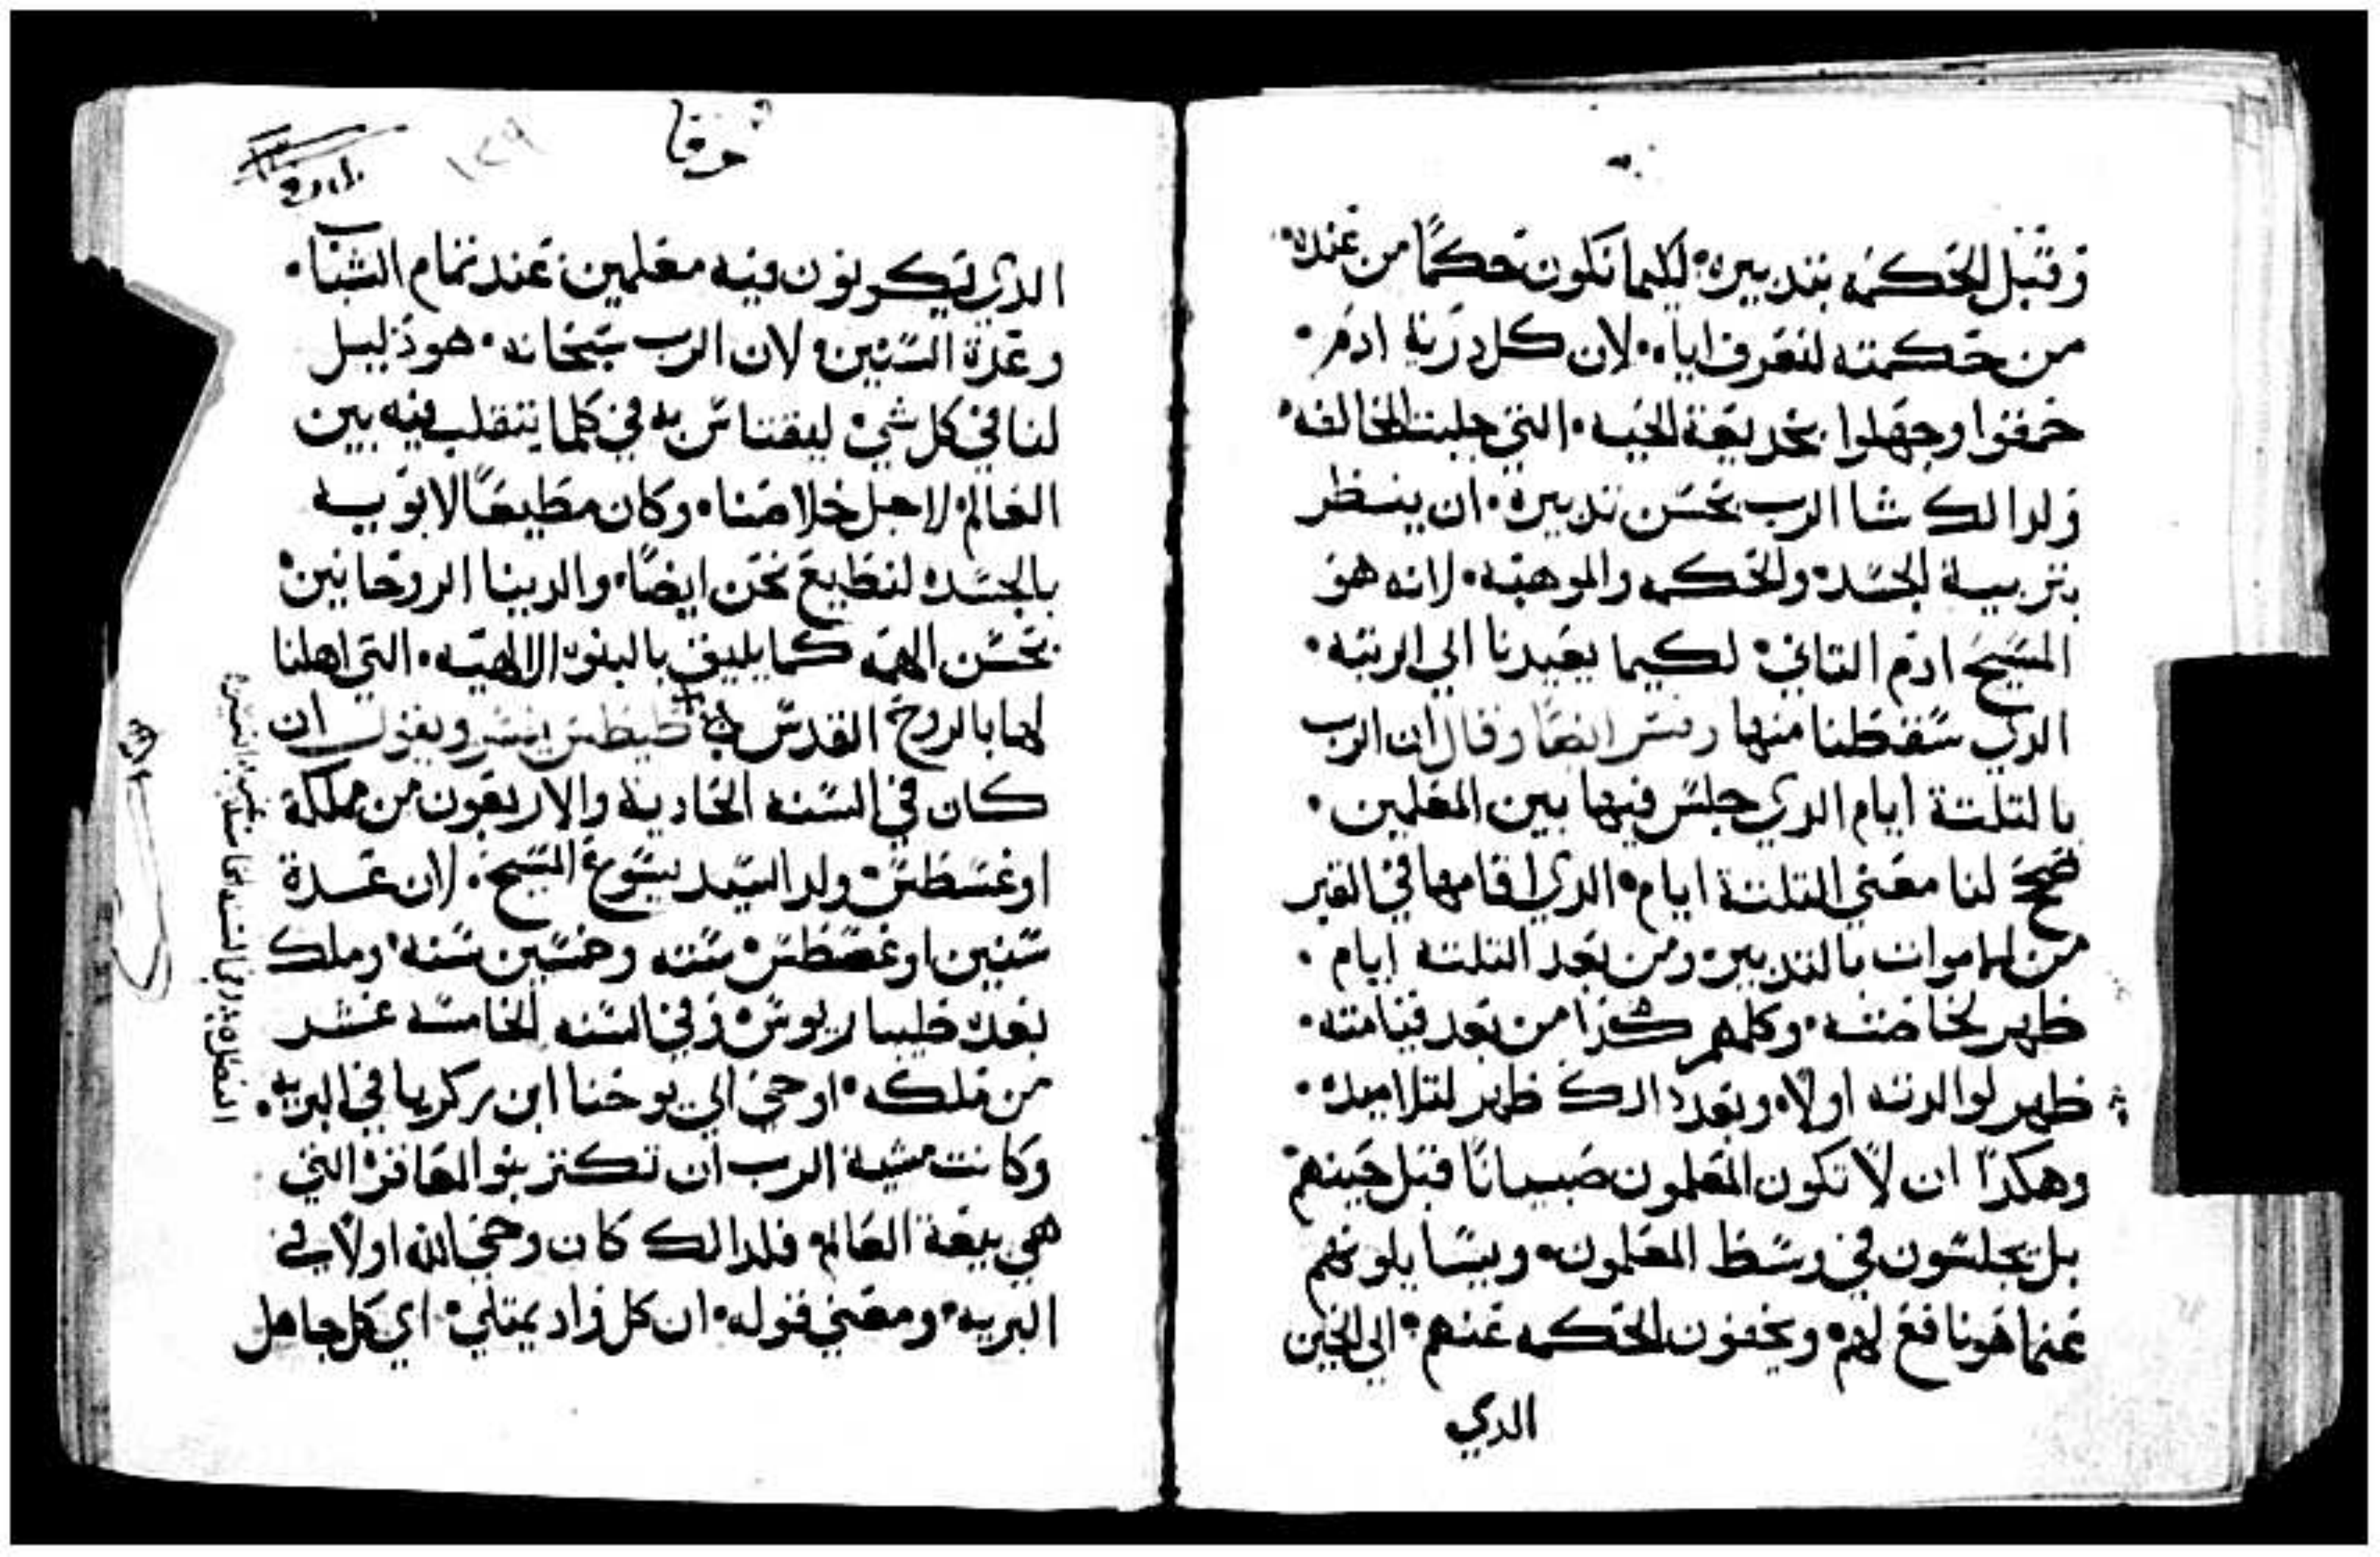 وقبل الحكمه بتدبيره لكيما نكون حكمًا من عنده
من حكمته لنعرف اياه لان كل درية ادم
حمقوا وجهلوا بخديعة الحيه التي جلبت المخالفه
ولدالك شا الرب بحسن تدبيره ان ينظر
بتربية الجسد والحكمه والموهبه لانه هو
المسيح ادم التاني لكيما يعيدنا الي الرتبه
الدي سقطنا منها وفسر ايضًا وقال ان الرب
بالتلتة ايام الدي جلس فيها بين المعلمين
صحح لنا معني التلتة ايام الدي اقامها في القبر
من الاموات بالتدبير ومن بعد التلته ايام
ظهر لخاصته وكلهم كدا من بعد قيامته
ظهر لوالدته اولا وبعد دالك ظهر لتلاميده
وهكدا ان لا تكون المعلمون صبيانًا قبل حينهم
بل يجلسون في وسط المعلمون ويسايلونهم
عنما هو نافع لهم ويخفون الحكمه عنهم الي الحين
الدي
لوقا
١٢٩
الدي يكونون فيه معلمين عند تمام الشباب
وعدة السنين لان الرب سبحانه هو دليل
لنا في كل شي ليقتاس به في كلما يتقلب فيه بين
العالم لاجل خلاصنا وكان مطيعًا لابويه
بالجسد لنطيع نحن ايضًا والدينا الروحانين
بحسن الهمه كما يليق بالبنوه الالاهيه التي اهلنا
لها بالروح القدس طيطس يفسر ويقول ان
كان في السنه الحادية والاربعون من مملكة
اوغسطس ولد السيد يسوع المسيح لان عدة
سنين اوغسطس سته وخمسين سنه وملك
بعده طيباريوس وفي السنه الخامسه عشر
من ملكه اوحي الي يوحنا ابن زكريا في البريه
وكانت مشية الرب ان تكتر بنو العاقر التي
هي بيعة العالم فلدالك كان وحي الله اولًا في
البريه ومعني قوله ان كل واد يمتلي اي كل جاهل